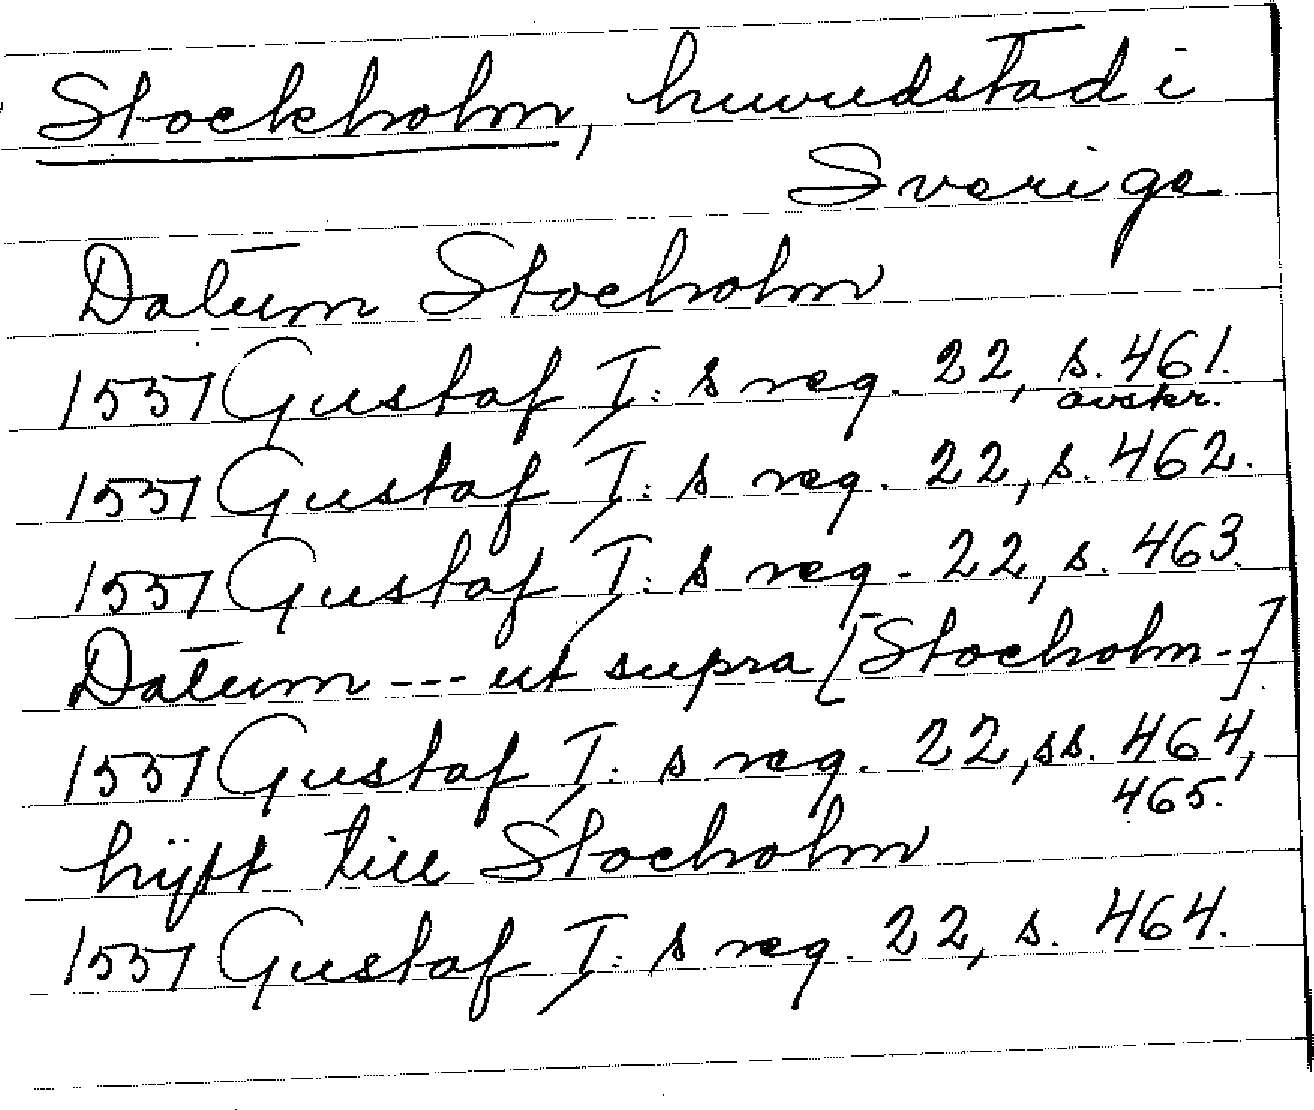 Stockholm, huvudstad i
Sverige
Datum Stocholm
1557 Gustaf I: s reg. 22, s. 461.
avskr.
1557 Gustaf I: s reg. 22, s. 462.
1557 Gustaf I: s reg. 22, s. 463.
Datum --- ut supra [Stocholm--]
1557 Gustaf I: s reg. 22, ss. 464,
465.
hijtt till Stocholm
1557 Gustaf I: s reg. 22, s. 464.